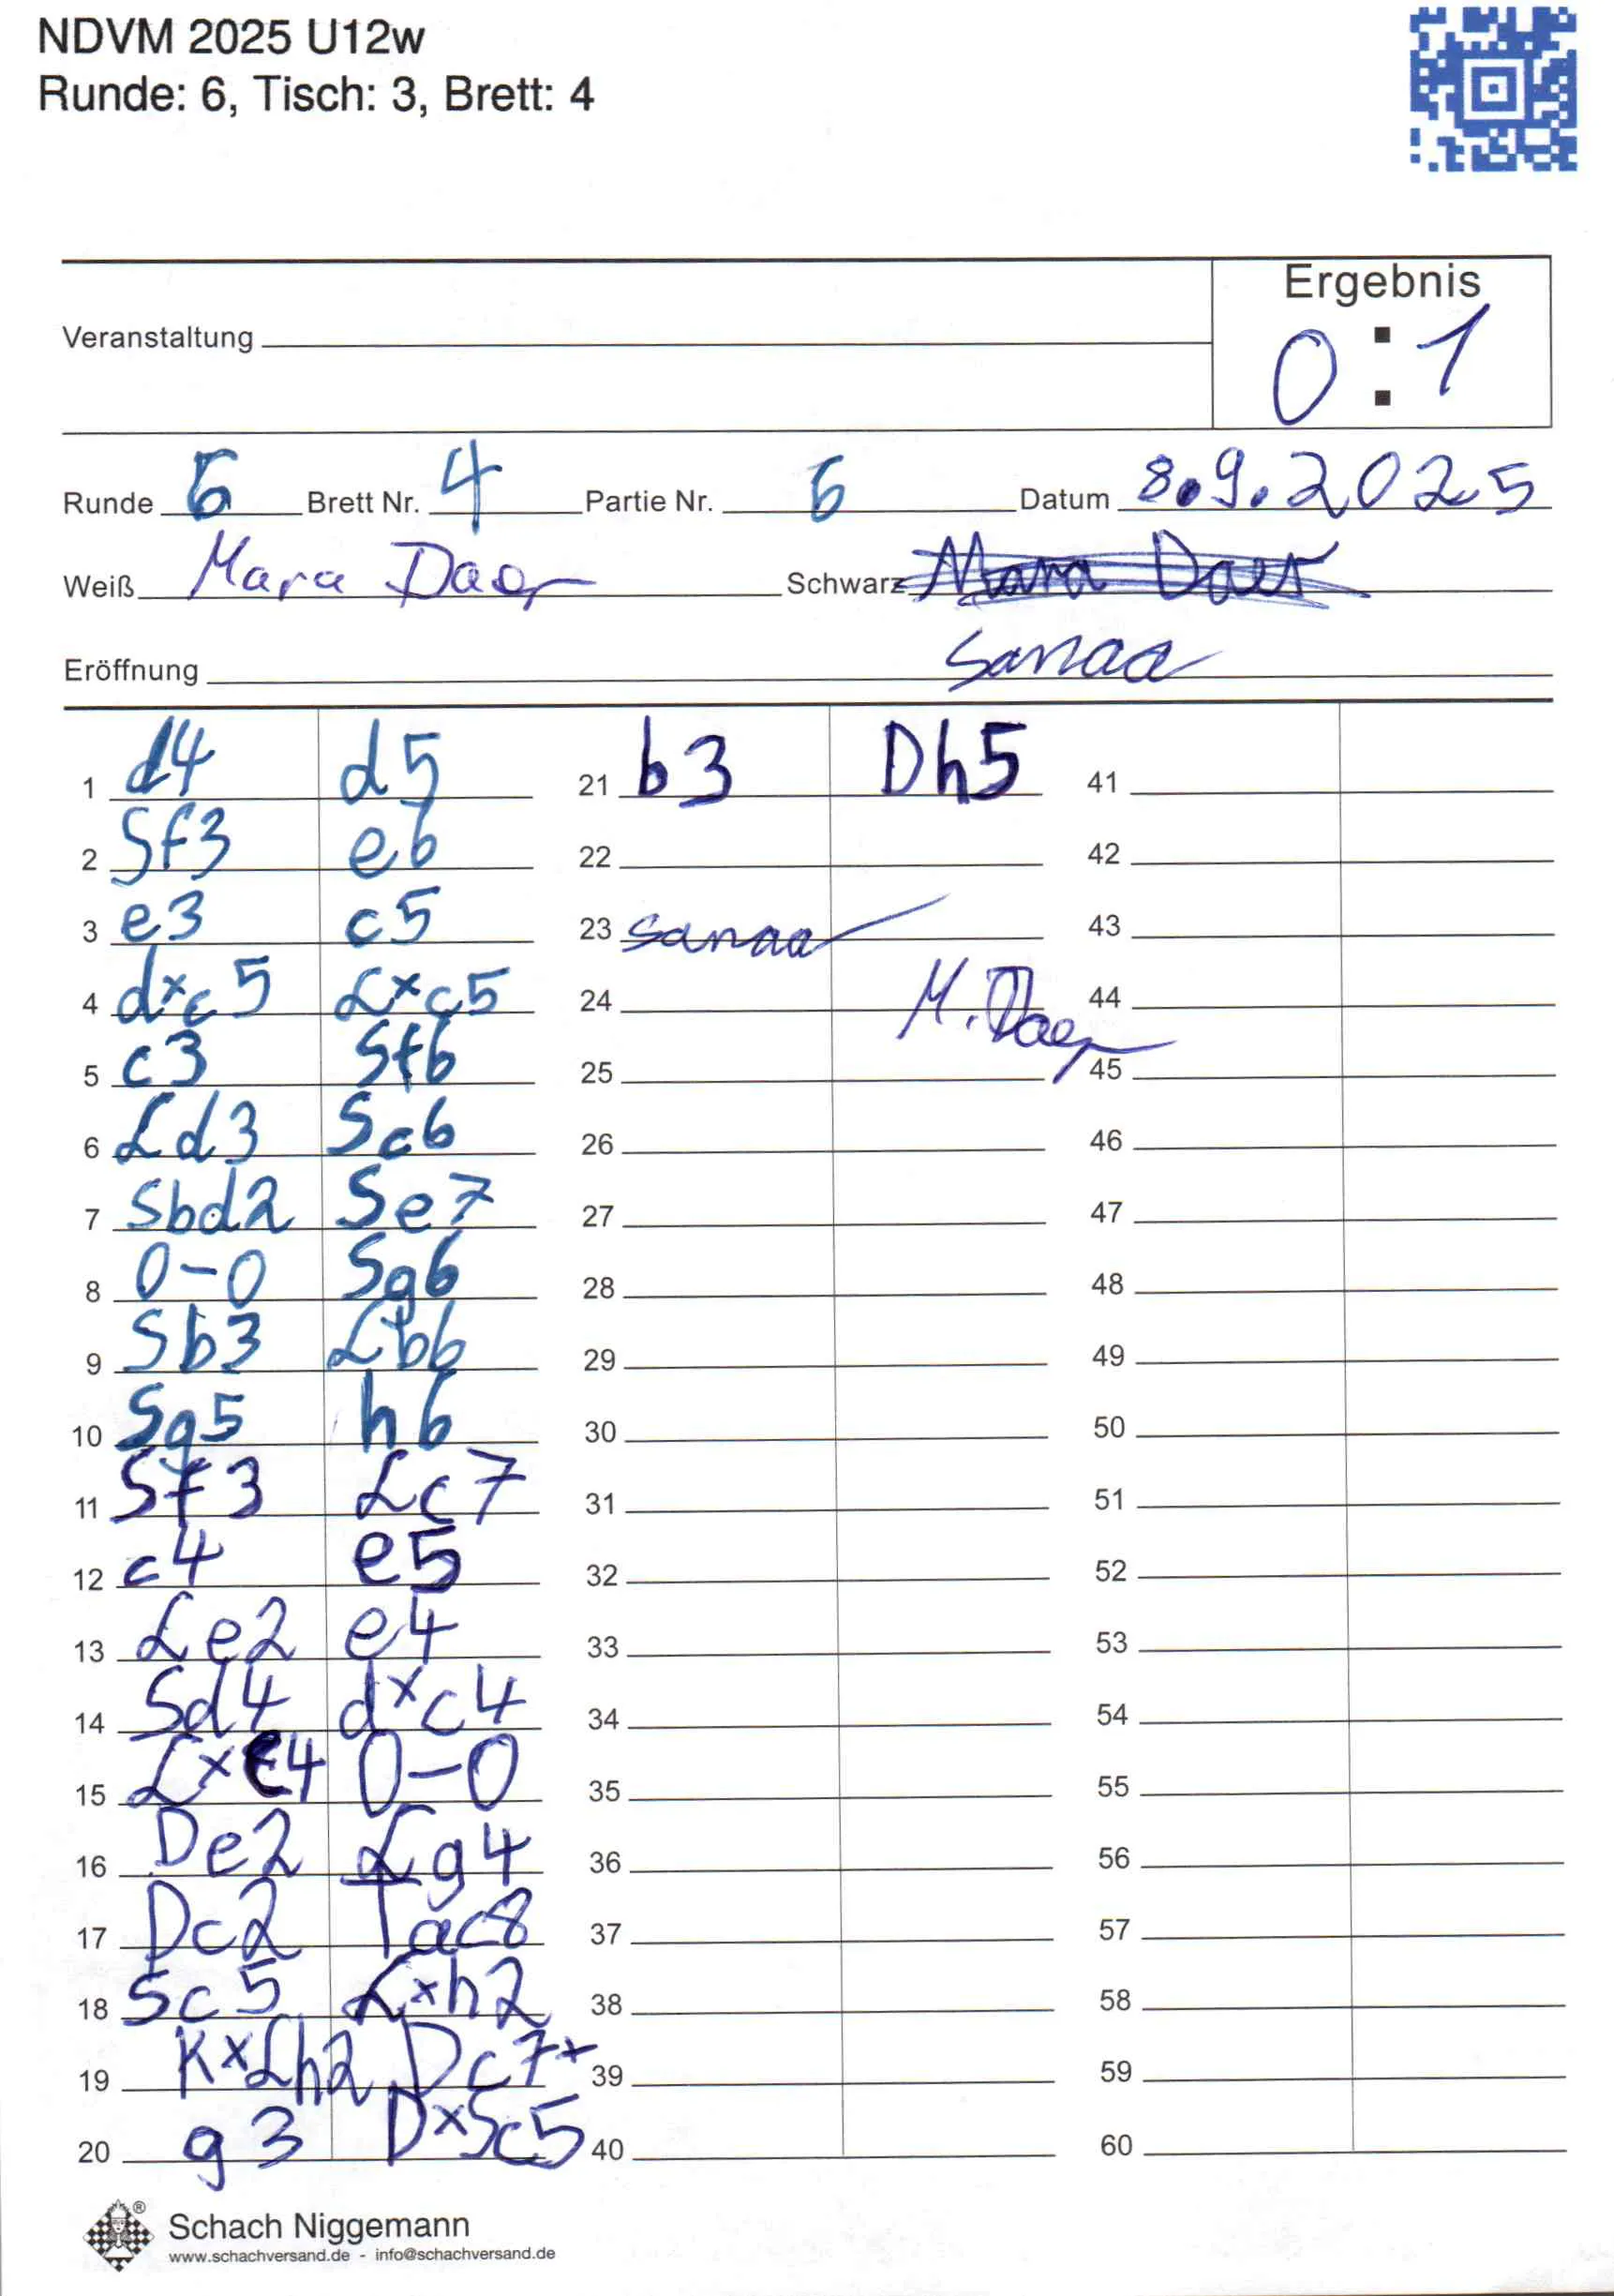 NDVM 2025 U12w
Runde: 6, Tisch: 3, Brett: 4
Ergebnis
0 : 1
Veranstaltung
Runde 6 Brett Nr. 4 Partie Nr. 6 Datum 8.9.2025
Weiß Mara Daer Schwarz Mara Daer
Eröffnung Sanaa
1 d4 d5 21 b3 Dh5 41
2 Sf3 e6 22 42
3 e3 c5 23 sanaa 43
4 dxc5 Lxc5 24 M. Daer 44
5 c3 Sf6 25 45
6 Ld3 Sc6 26 46
7 Sbd2 Se7 27 47
8 0-0 Sg6 28 48
9 Sb3 Lb6 29 49
10 Sg5 h6 30 50
11 Sf3 Lc7 31 51
12 c4 e5 32 52
13 Le2 e4 33 53
14 Sd4 dxc4 34 54
15 Lxc4 0-0 35 55
16 De2 Lg4 36 56
17 Dc2 Tac8 37 57
18 Sc5 Lxh2 38 58
19 KxLh2 Dc7+ 39 59
20 g3 DxSc5 40 60
Schach Niggemann
www.schachversand.de - info@schachversand.de